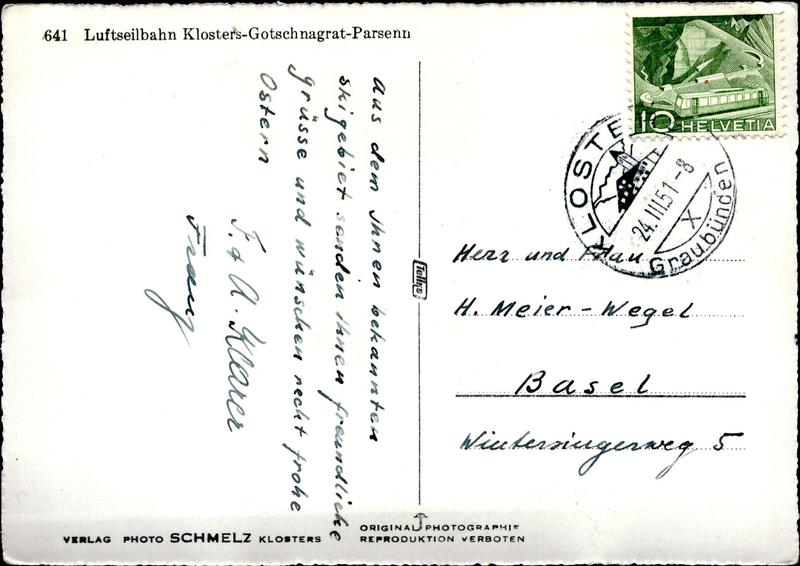 641 Luftseilbahn Klosters-Gotschnagrat-Parsenn
Aus dem Ihnen bekannten
Skigebiet senden Ihnen freundliche
Grüsse und wünschen recht frohe
Ostern
F. & A. Klarer
Franz
10 HELVETIA
KLOSTERS
24.III.51-8
X
Graubünden
Herr und Frau
H. Meier-Wegel
Basel
Wintersingerweg 5
VERLAG PHOTO SCHMELZ KLOSTERS
ORIGINAL PHOTOGRAPHIE
REPRODUKTION VERBOTEN